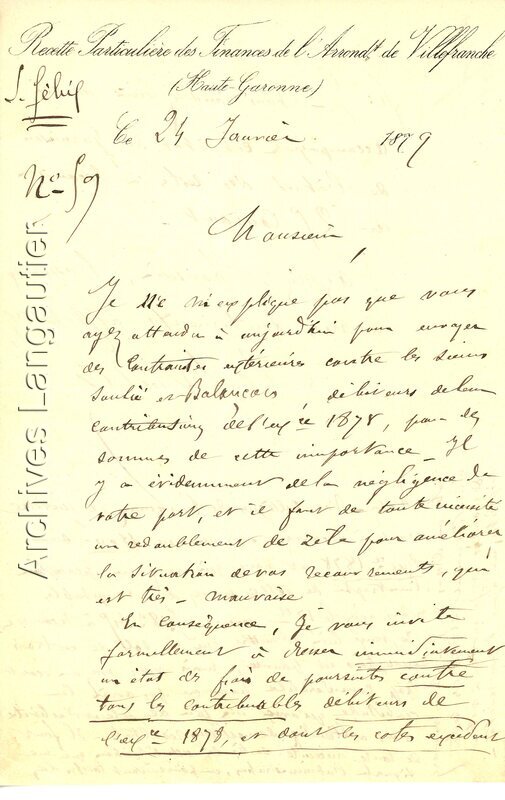 Recette Particulière des Finances de l'Arrond.t de Villefranche
(Haute-Garonne)
Le 24 Janvier 1879
No 59
Monsieur,
Je ne m'explique pas que vous
ayez attendu à aujourd'hui pour envoyer
des Contraintes extérieures contre les sieurs
Soulié et Balancou, débiteurs de leurs
contributions de l'ex.ce 1878, pour des
sommes de cette importance. Il
y a évidemment de la négligence de
votre part, et il faut de toute nécessité
un redoublement de zèle pour améliorer
la situation de vos recouvrements, qui
est très-mauvaise
En conséquence, je vous invite
formellement à dresser immédiatement
un état de frais de poursuites contre
tous les contribuables débiteurs de
l'ex.ce 1878, et dont les cotes excèdent
Archives Langautier